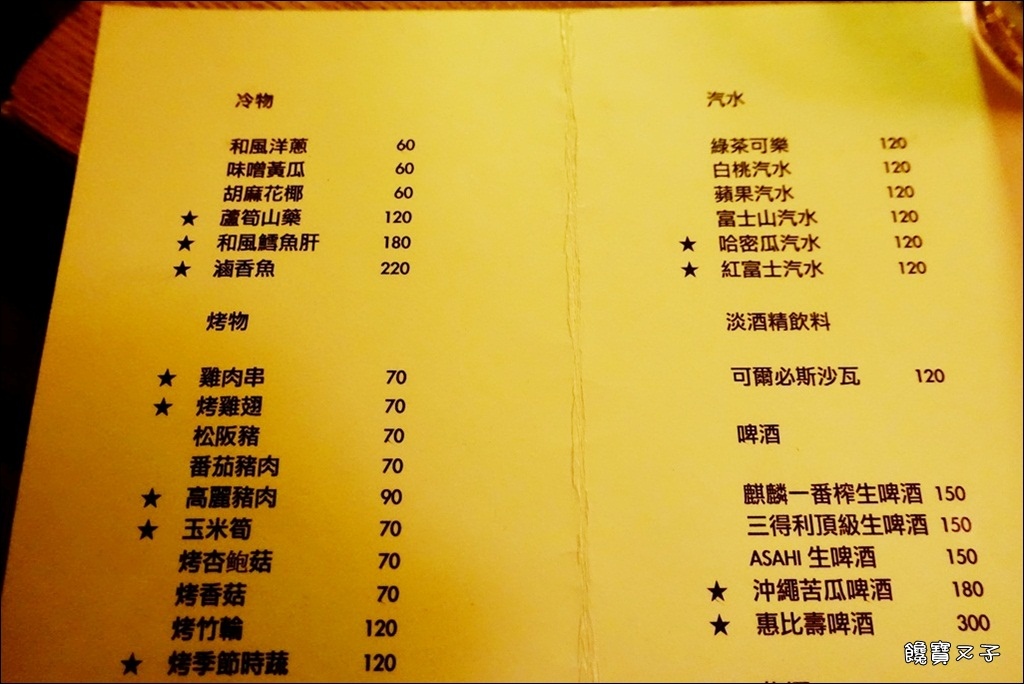 冷物
和風洋蔥 60
味噌黃瓜 60
胡麻花椰 60
★ 蘆筍山藥 120
★ 和風鱈魚肝 180
★ 滷香魚 220
烤物
★ 雞肉串 70
★ 烤雞翅 70
松阪豬 70
番茄豬肉 70
★ 高麗豬肉 90
★ 玉米筍 70
烤杏鮑菇 70
烤香菇 70
烤竹輪 120
★ 烤季節時蔬 120
汽水
綠茶可樂 120
白桃汽水 120
蘋果汽水 120
富士山汽水 120
★ 哈密瓜汽水 120
★ 紅富士汽水 120
淡酒精飲料
可爾必斯沙瓦 120
啤酒
麒麟一番榨生啤酒 150
三得利頂級生啤酒 150
ASAHI 生啤酒 150
★ 沖繩苦瓜啤酒 180
★ 惠比壽啤酒 300
饞寶ㄡ子